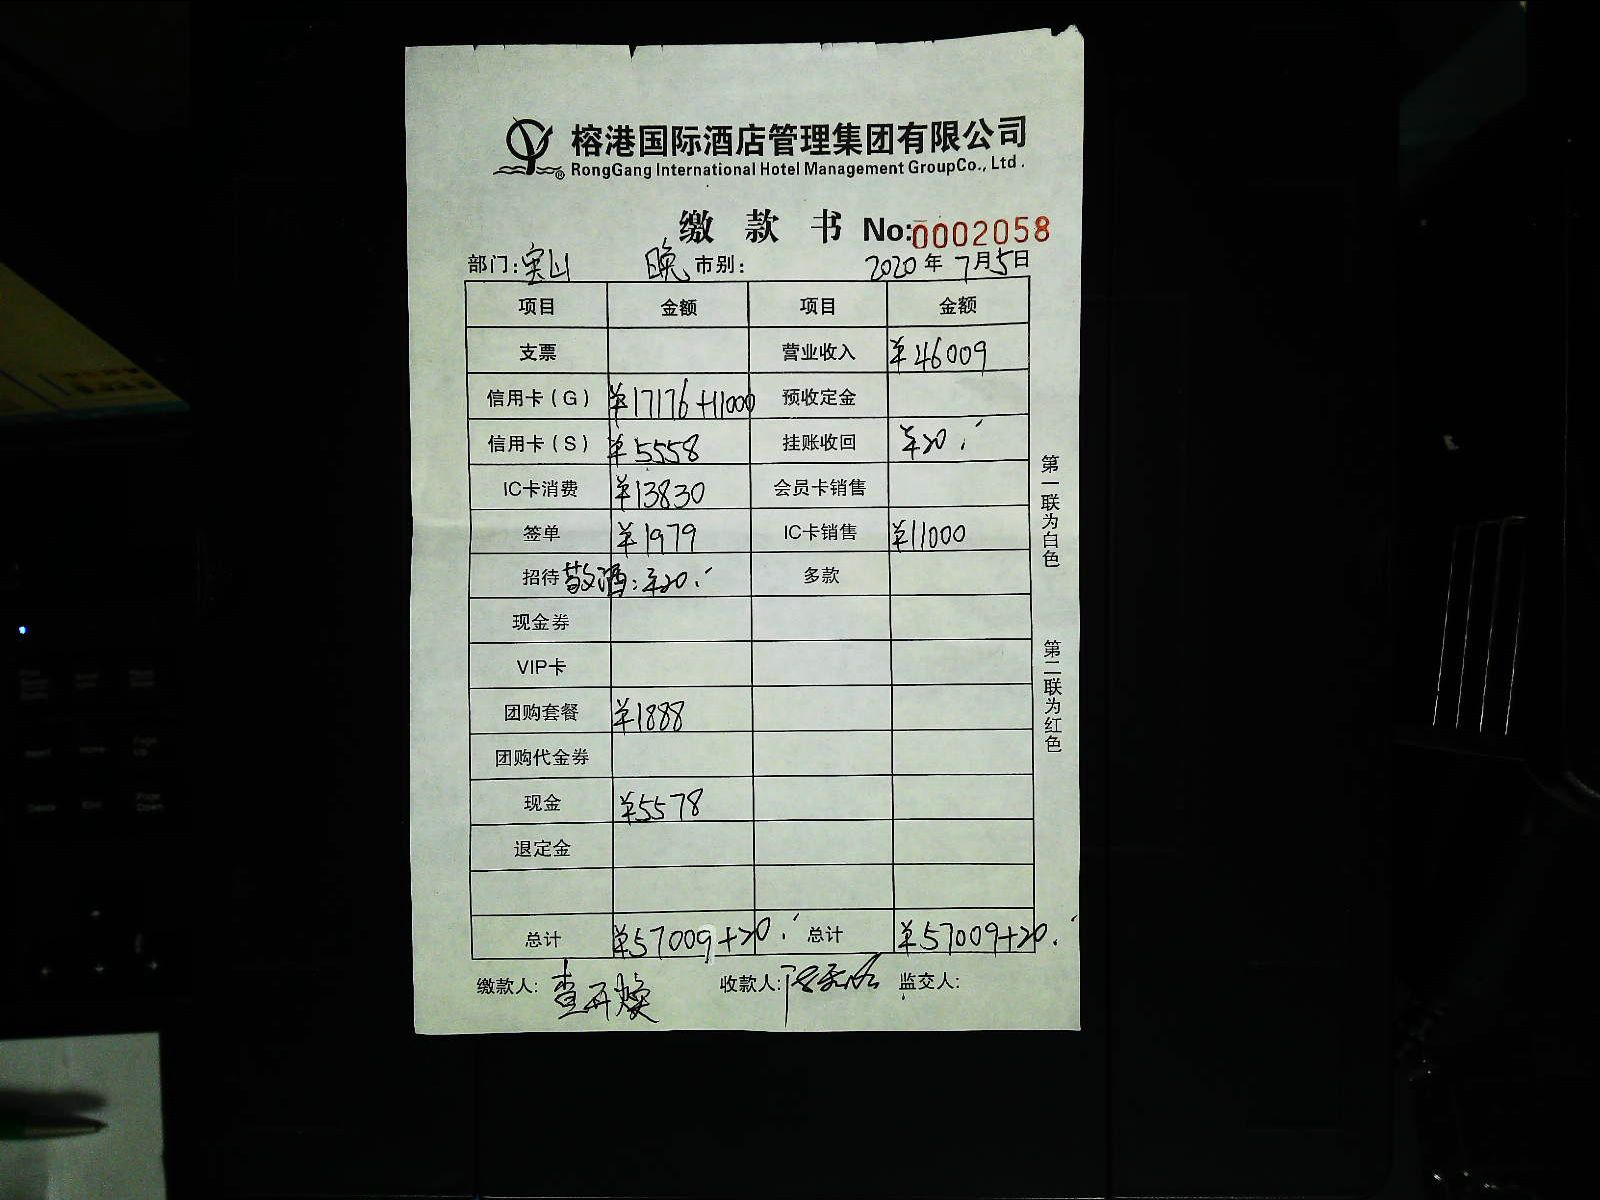 榕港国际酒店管理集团有限公司
RongGang International Hotel Management GroupCo., Ltd.
缴款书 No:0002058
部门:宝山 晚市别: 2020年7月5日
项目 金额 项目 金额
支票 营业收入 ¥46009
信用卡(G) ¥17176+11000 预收定金
信用卡(S) ¥5558 挂账收回 ¥20.
IC卡消费 ¥13830 会员卡销售
签单 ¥1979 IC卡销售 ¥11000
招待 敬酒:¥20. 多款
现金券
VIP卡
团购套餐 ¥1888
团购代金券
现金 ¥5578
退定金
总计 ¥57009+20. 总计 ¥57009+20.
缴款人: 收款人: 监交人:
第一联为白色
第二联为红色